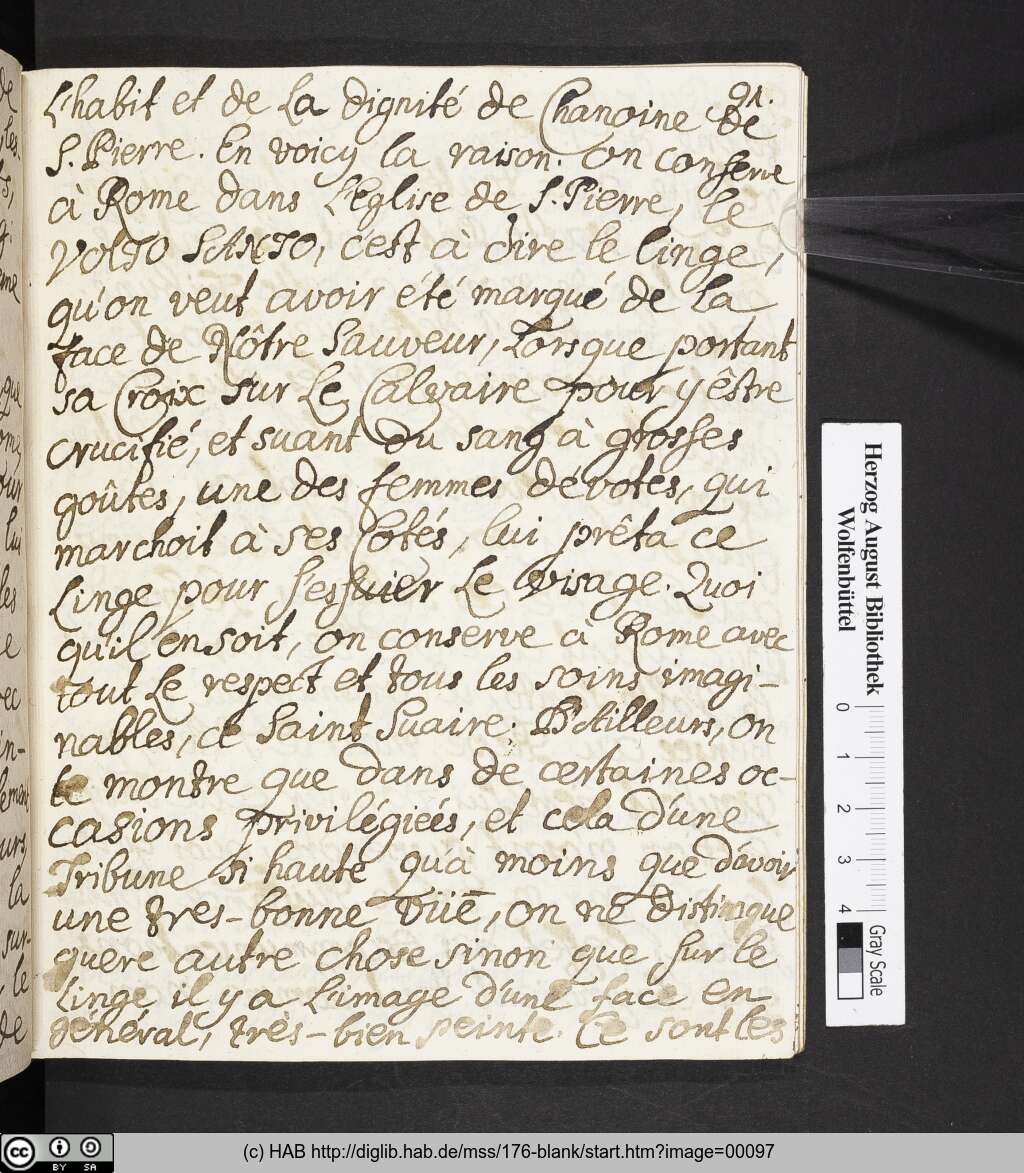 91.
L'habit et de La dignité de Chanoine de
S. Pierre. En voicy la raison. On conserve
à Rome dans l'Eglise de S. Pierre, le
VOLTO SANTO, c'est à dire le linge,
qu'on veut avoir été marqué de la
face de Nôtre Sauveur, Lorsque portant
sa Croix sur Le Calvaire pour y êstre
crucifié, et suant du sang à grosses
goûtes, une des femmes dévotes, qui
marchoit à ses Cotés, lui prêta ce
Linge pour s'essuier Le visage. Quoi
qu'il en soit, on conserve à Rome avec
tout Le respect et tous les soins imagi-
nables, ce Saint Suaire. D'Ailleurs, on
le montre que dans de certaines oc-
casions privilégiées, et cela d'une
Tribune si haute qu'à moins que d'avoir
une tres-bonne vüe, on ne distingue
guere autre chose sinon que sur le
Linge il y a L'image d'une face en
général, très-bien peinte. Ce sont les
Herzog August Bibliothek
Wolfenbüttel
0 1 2 3 4
Gray Scale
cc BY SA
(c) HAB http://diglib.hab.de/mss/176-blank/start.htm?image=00097